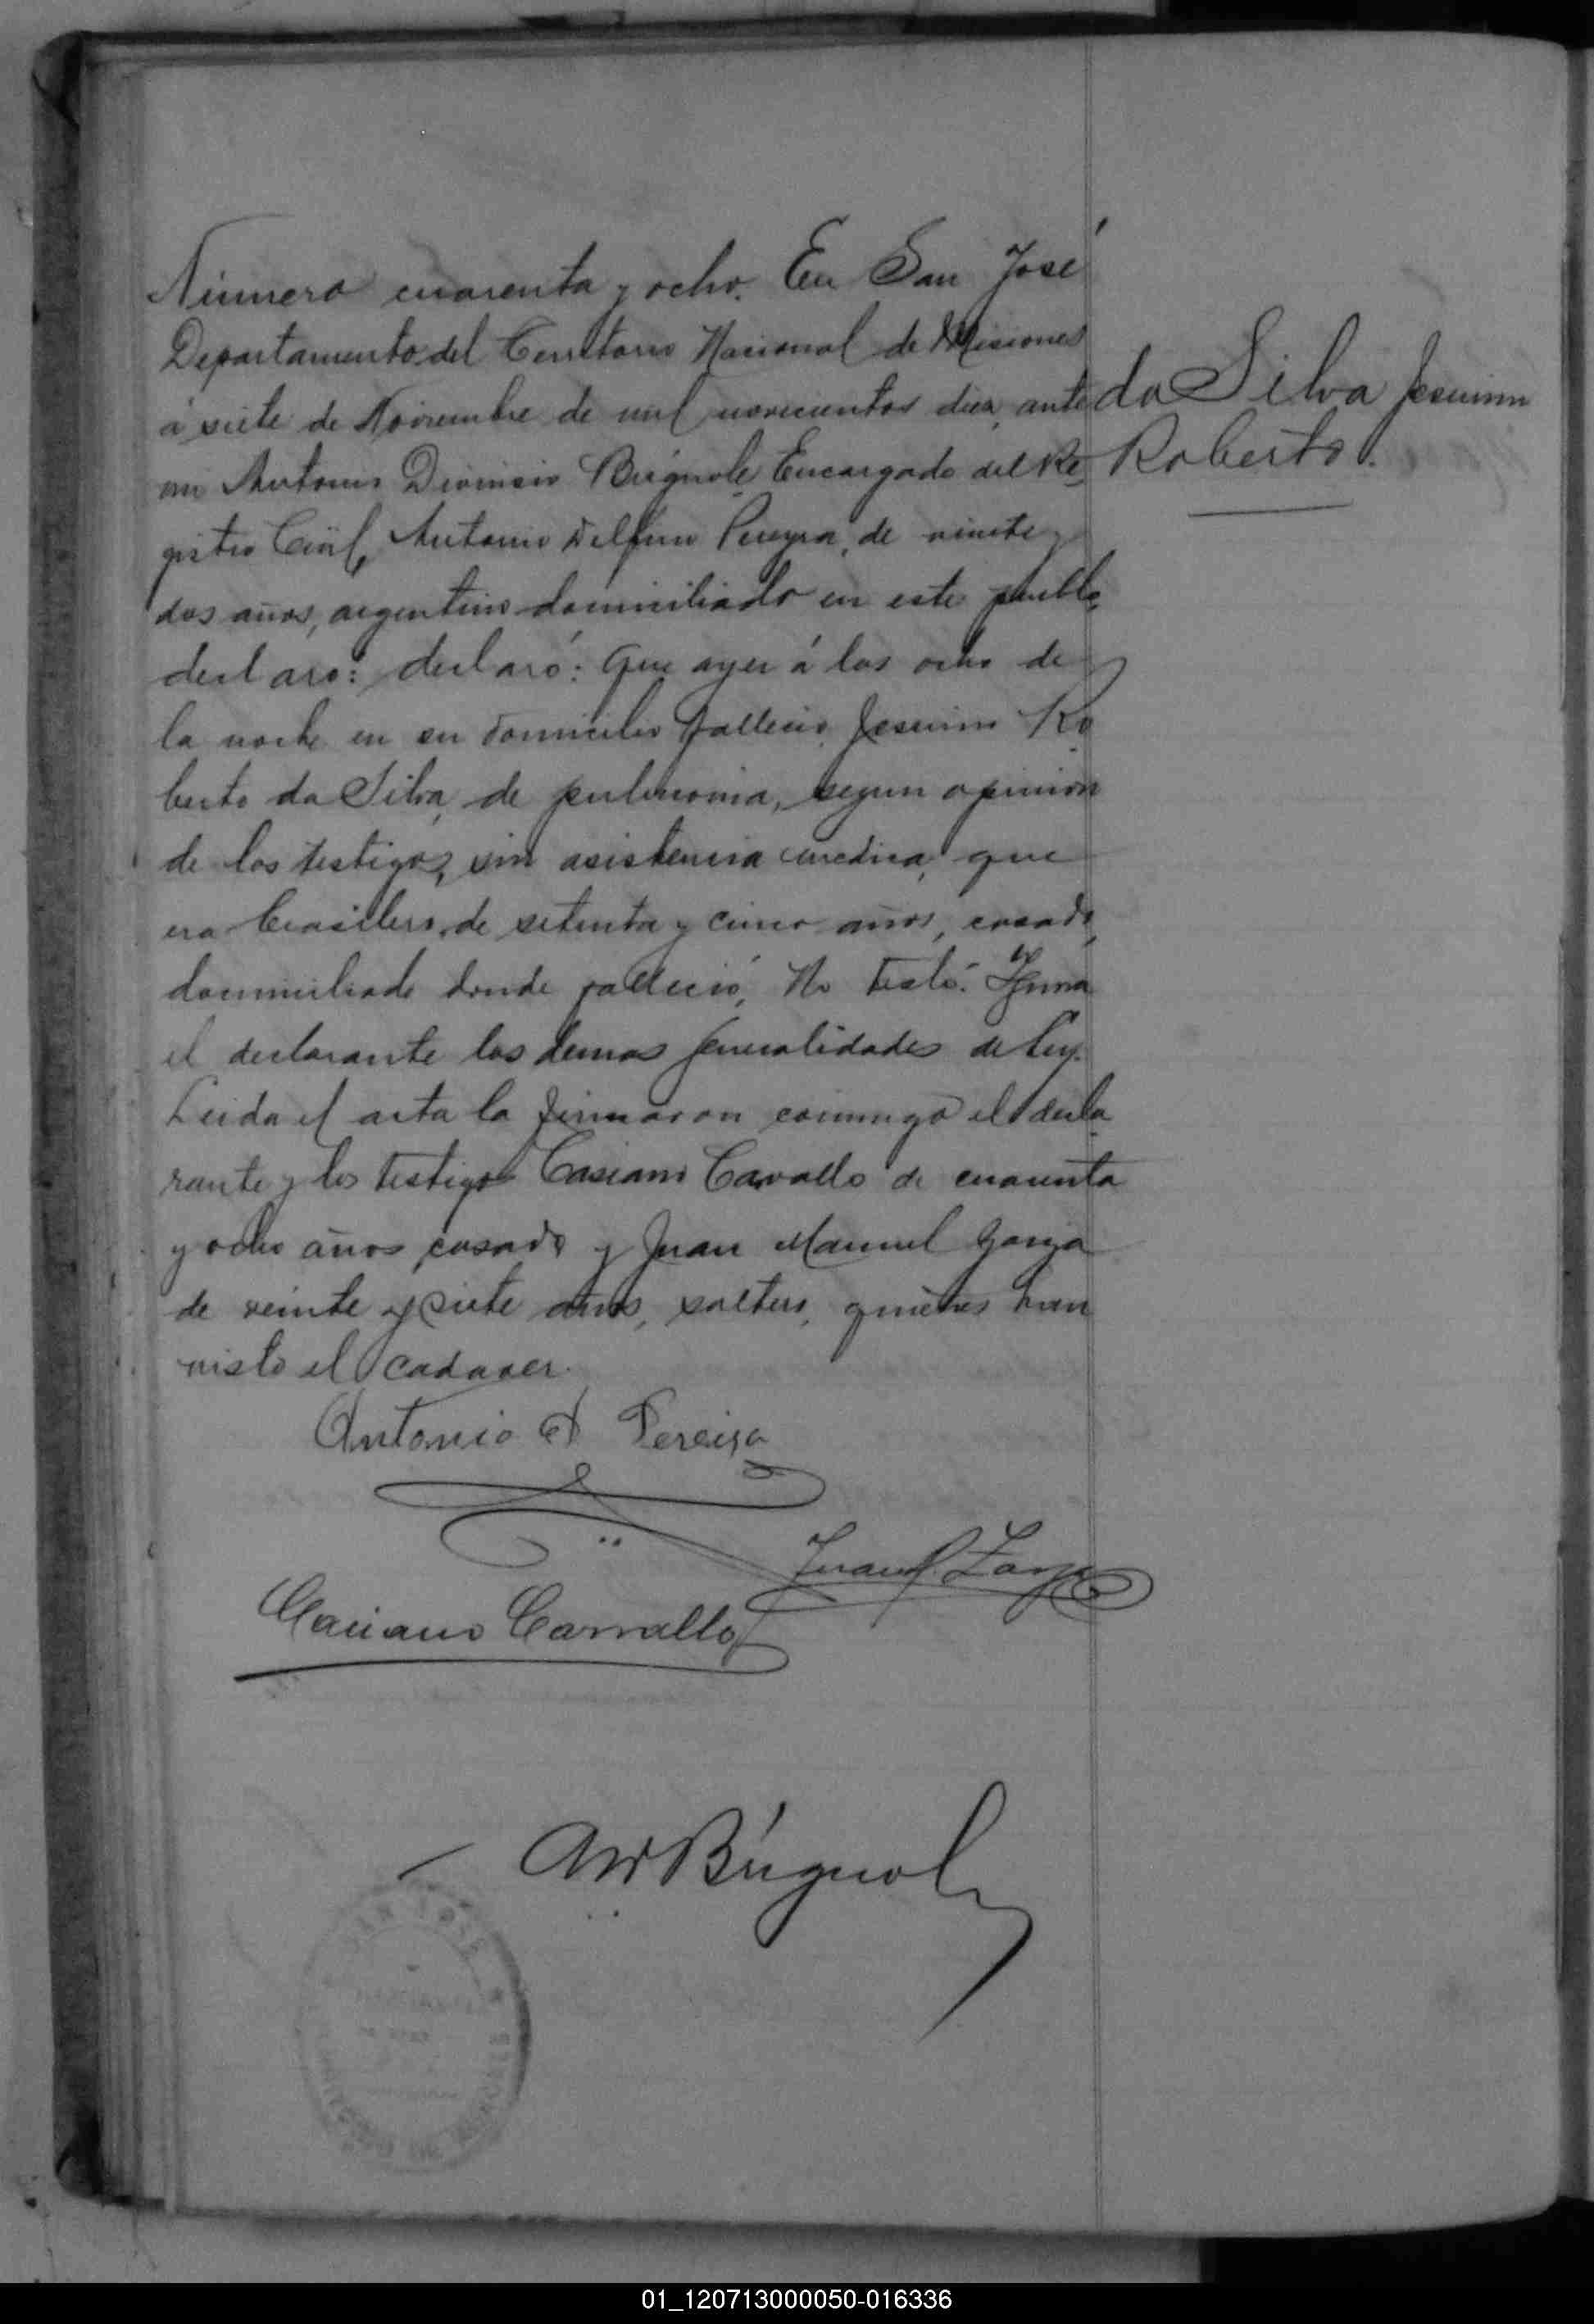 Número cuarenta y ocho. En San José
Departamento del Territorio Nacional de Misiones
á siete de Noviembre de mil novecientos diez, ante
mi Antonio Dionisio Brignole Encargado del Re
gistro Civil, Antonio Delfino Pereyra, de veinte y
dos años, argentino domiciliado en este pueblo,
declaro: declaró: Que ayer á las ocho de
la noche en su domicilio fallecio Jesuino Ro
berto da Silva, de pulmonia, segun opinion
de los testigos, sin asistencia medica, que
era brasilero, de setenta y cinco años, casado,
domiciliado donde falleció, No testó. Ygnora
el declarante las demas generalidades de ley.
Leida el acta la firmaron conmigo el decla
rante y los testigos Casiano Carvallo de cuarenta
y ocho años, casado y Juan Manuel
de veinte y siete años, soltero, quienes han
visto el cadaver.
da Silva Jesuino
Roberto.
Antonio D Pereira
Juan
Caciano Carvallo
AD Brignole
SAN JOSE
01_120713000050-016336